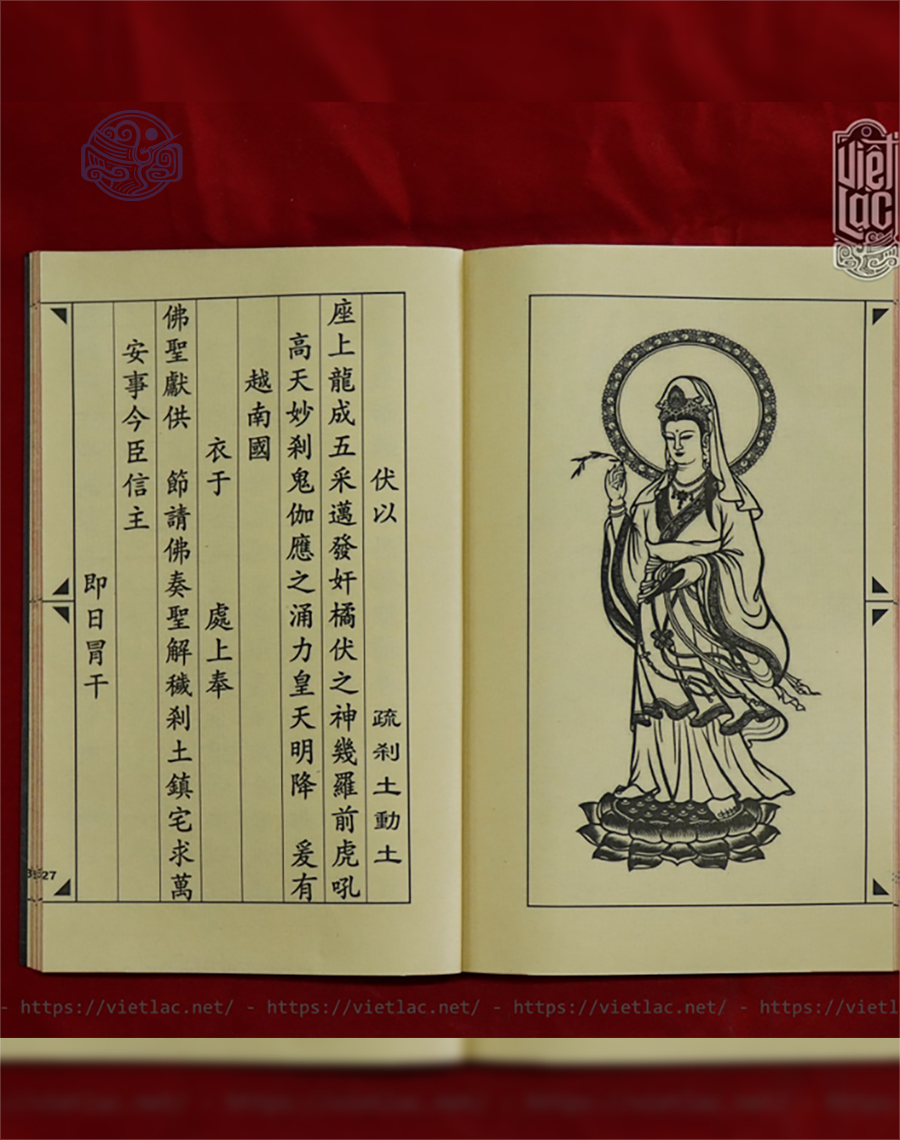 Việt Lạc
伏以 疏刹土動土
座上龍成五采邁發奸橘伏之神幾羅前虎吼
高天妙刹鬼伽應之涌力皇天明降 爰有
越南國
衣于 處上奉
佛聖獻供 節請佛奏聖解穢刹土鎮宅求萬
安事今臣信主
即日冐干
27
- https://vietlac.net/ - https://vietlac.net/ - https://vietlac.net/ - https://vietl